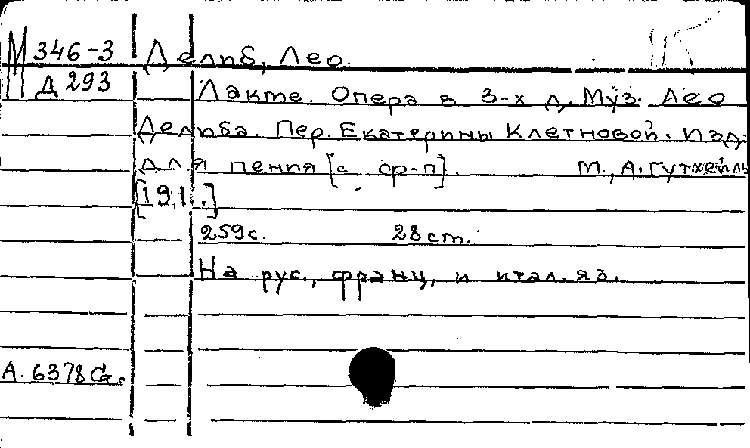 М 346-3 Делиб, Лео.
Д 293
Лакме. Опера в 3-х д. Муз. Лео
Делиба. Пер. Екатерины Клетновой. Изд.
для пения [с ф-п]. М., А. Гутхейль
[191.]
259с. 28 см.
На рус., франц. и итал. яз.
А. 6378